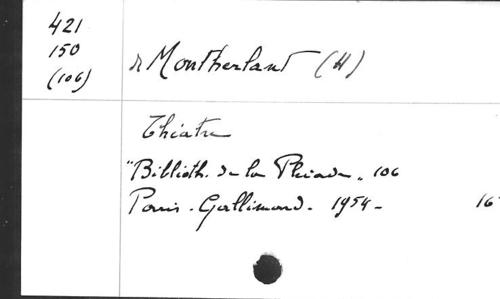 421
150
(106)
de Montherlant (H)
Théatre
"Biblioth. de la Pleiade" 106
Paris - Gallimard - 1954 - 16°